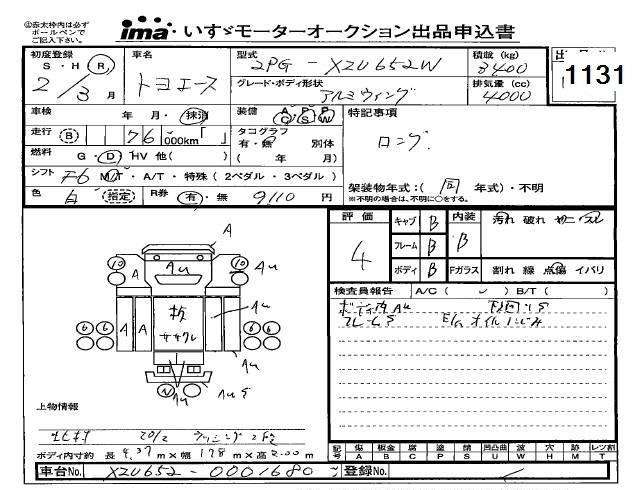 ◎赤太枠内は必ず
ボールペンで
ご記入下さい。
ima・いすゞモーターオークション出品申込書
初度登録 車名 型式 2PG - XZU652W 積載 (kg) 3400
S・H R トヨエース グレード・ボディ形状 アルミウィング 排気量 (cc) 4000
2/3月
1131
車検 年 月・抹消 装備 AC PS PW 特記事項
走行 B 76,000km「 」 タコグラフ 有・無 別体 ロング
燃料 G・D HV 他( ) ( 年 月)
シフト F6 M/T・A/T・特殊 (2ペダル・3ペダル)
色 白 指定 R券 有・無 9,110 円
架装物年式:( 同 年式)・不明
※不明の場合は、不明に○をする。
評価 キャブ B 内装 汚れ 破れ
4 フレーム B B
ボディ B Fガラス 割れ 線 点傷 イバリ
検査員報告 A/C ( ) B/T ( )
ボディ内 Au
フレームS E/G オイルにじみ
A
10 10
A Au Au
A A Au Au
6 6 6 6
ササクレ
Au
Au Au S
上物情報
ボディ内寸約 長 4.37 m×幅 178 m×高 2.00 m
記号 傷A 板金B 腐C 塗P 錆S 凹凸曲U 波W 穴H 跡M レツ割T
車台No. XZU652-0001680 登録No.